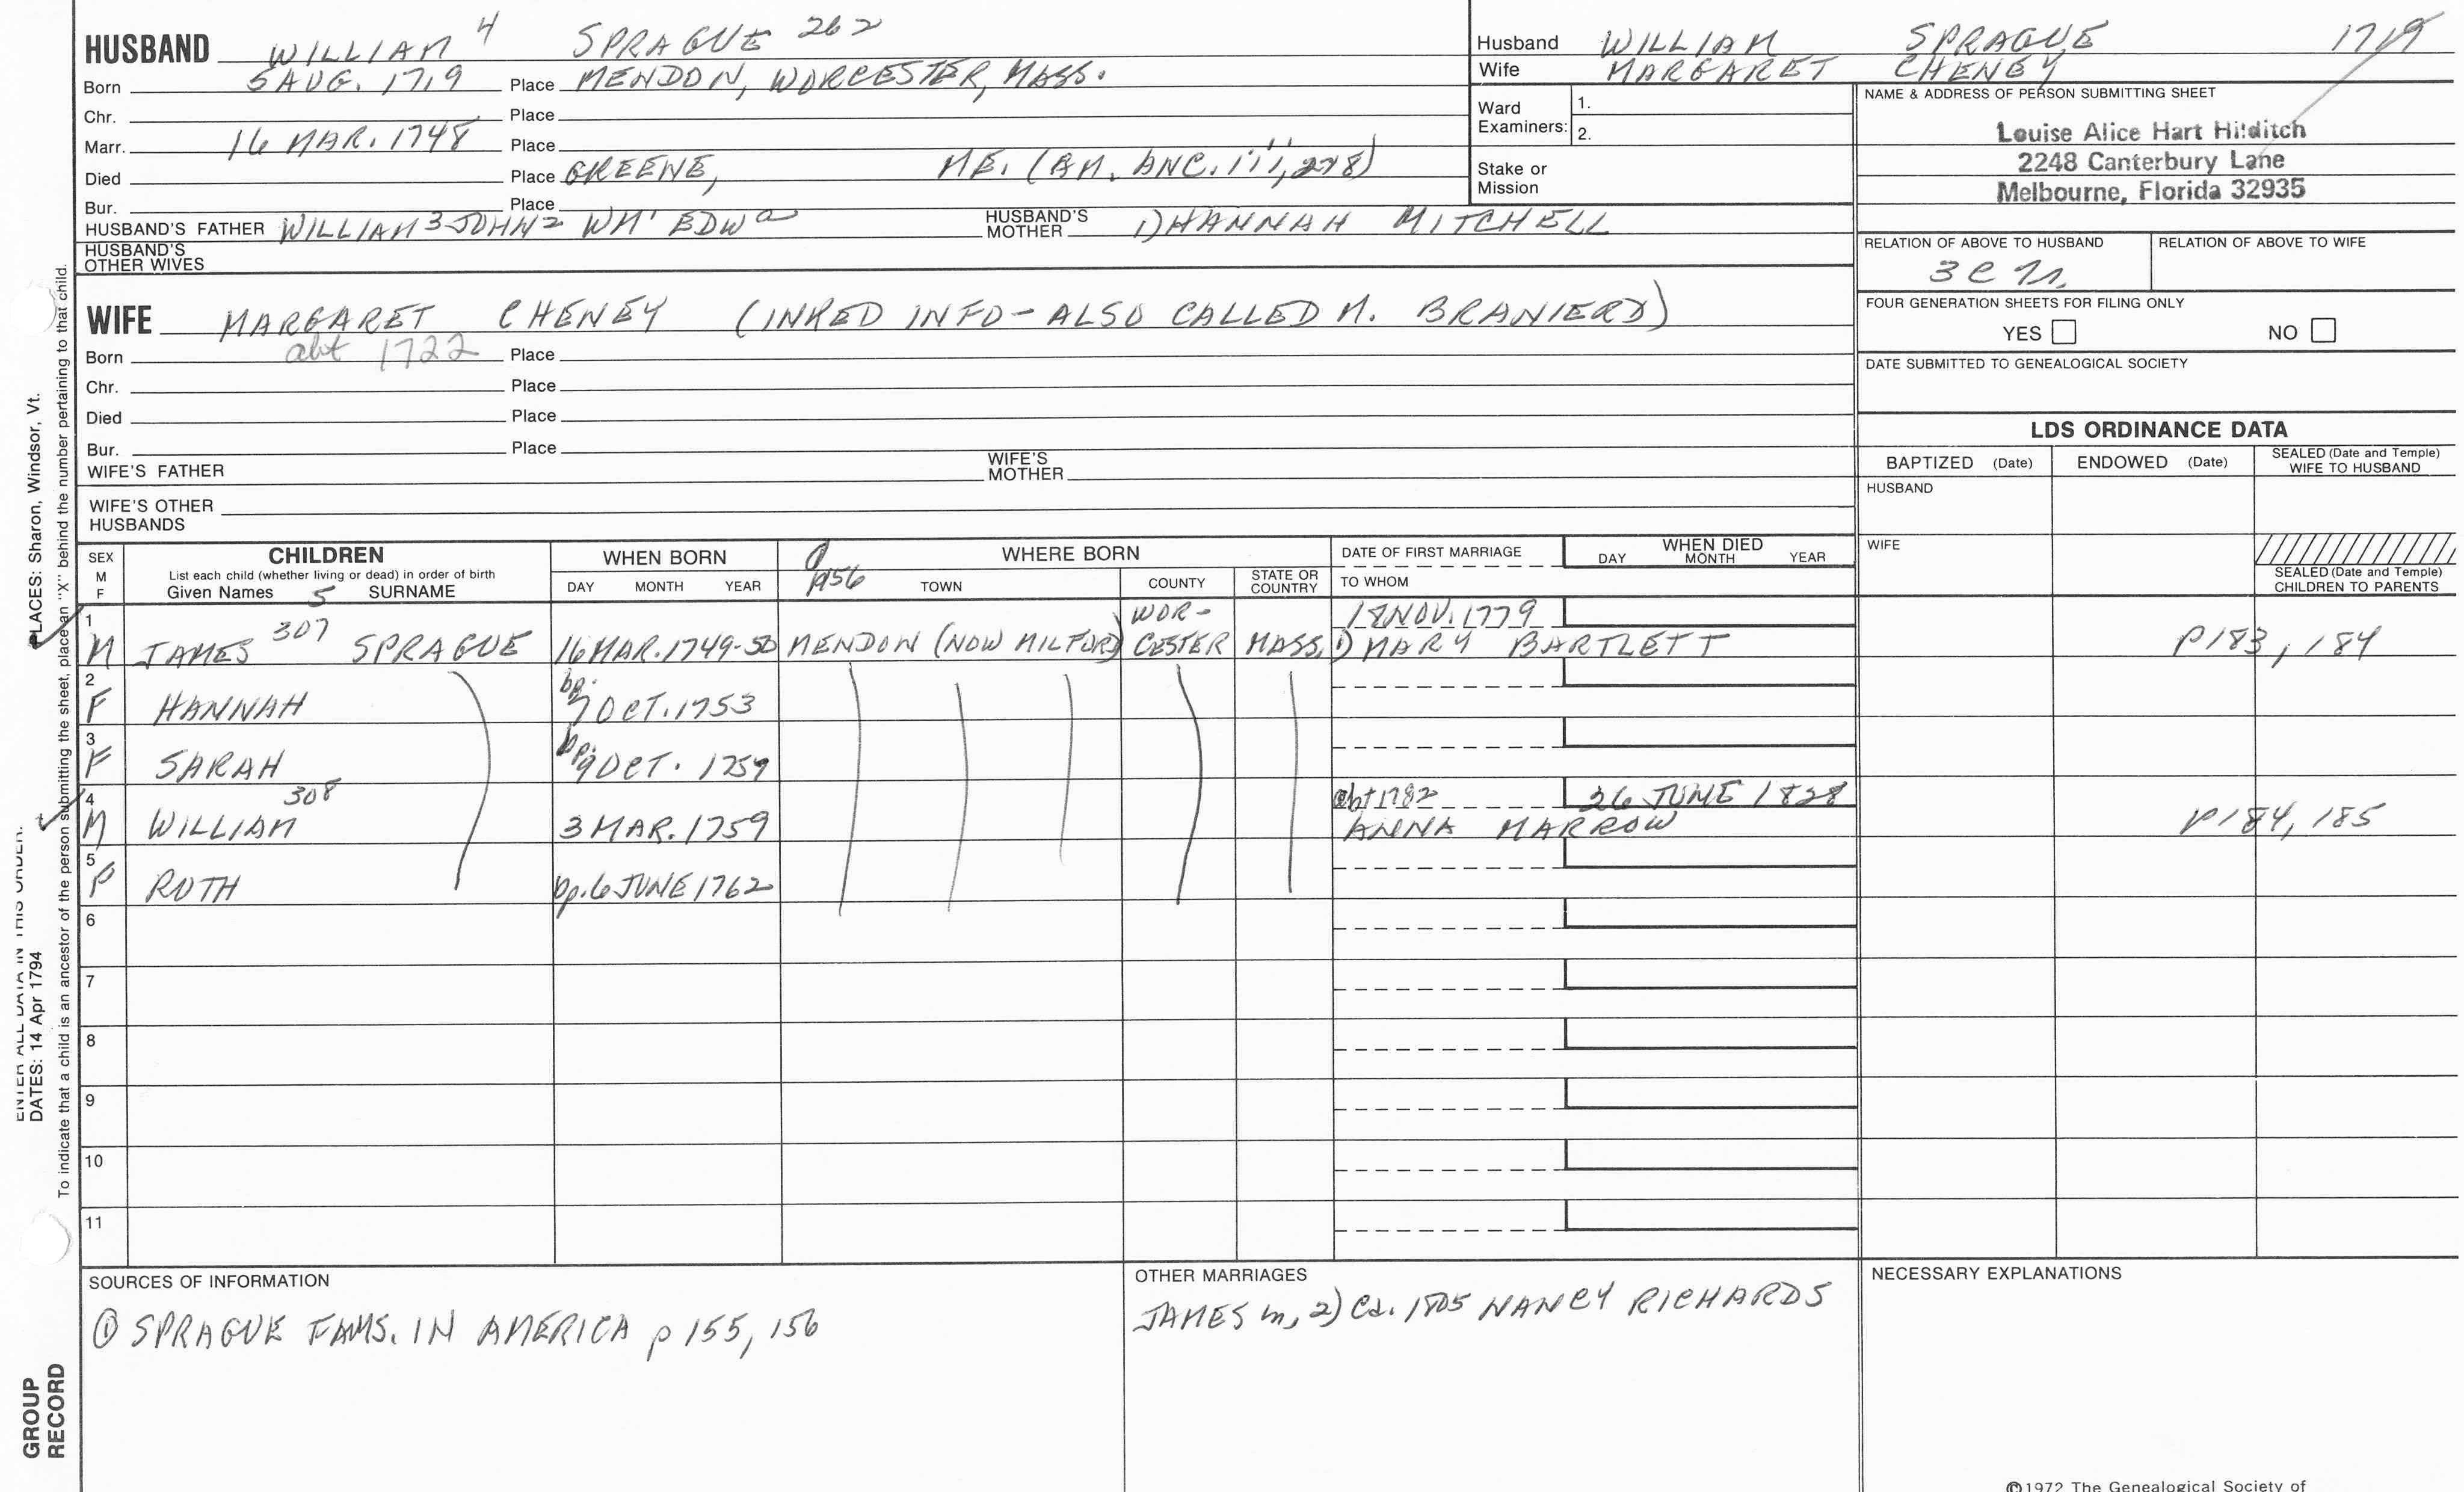 HUSBAND WILLIAM 4 SPRAGUE 262
Born 5 AUG. 1719 Place MENDON, WORCESTER, MASS.
Chr. Place
Marr. 16 MAR. 1748 Place
Died Place GREENE, ME. (AM. ANC. iii, 278)
Bur. Place
HUSBAND'S FATHER WILLIAM 3 JOHN 2 WM 1 EDW a HUSBAND'S MOTHER 1) HANNAH MITCHELL
HUSBAND'S OTHER WIVES
Husband WILLIAM SPRAGUE 1719
Wife MARGARET CHENEY
Ward Examiners: 1.
2.
Stake or Mission
NAME & ADDRESS OF PERSON SUBMITTING SHEET
Louise Alice Hart Hilditch
2248 Canterbury Lane
Melbourne, Florida 32935
RELATION OF ABOVE TO HUSBAND RELATION OF ABOVE TO WIFE
FOUR GENERATION SHEETS FOR FILING ONLY
YES NO
DATE SUBMITTED TO GENEALOGICAL SOCIETY
WIFE MARGARET CHENEY (INKED INFO - ALSO CALLED M. BRANIERD)
Born abt 1722 Place
Chr. Place
Died Place
Bur. Place
WIFE'S FATHER WIFE'S MOTHER
WIFE'S OTHER HUSBANDS
LDS ORDINANCE DATA
BAPTIZED (Date) ENDOWED (Date) SEALED (Date and Temple) WIFE TO HUSBAND
HUSBAND
WIFE
SEALED (Date and Temple) CHILDREN TO PARENTS
SEX M F CHILDREN WHEN BORN WHERE BORN DATE OF FIRST MARRIAGE WHEN DIED
List each child (whether living or dead) in order of birth DAY MONTH YEAR p156 TOWN COUNTY STATE OR COUNTRY TO WHOM DAY MONTH YEAR
Given Names 5 SURNAME
1 M JAMES 307 SPRAGUE 16 MAR. 1749-50 MENDON (NOW MILFORD) WOR-CESTER MASS. 18 NOV. 1779 1) MARY BARTLETT P183, 184
2 F HANNAH bp. 7 OCT. 1753
3 F SARAH bp. 9 OCT. 1757
4 M WILLIAM 308 3 MAR. 1759 abt 1782 ANNA MARROW 26 JUNE 1828 P184, 185
5 F RUTH bp. 6 JUNE 1762
6
7
8
9
10
11
SOURCES OF INFORMATION
① SPRAGUE FAMS. IN AMERICA p 155, 156
OTHER MARRIAGES
JAMES m, 2) Ca. 1805 NANCY RICHARDS
NECESSARY EXPLANATIONS
©1972 The Genealogical Society of
PLACES: Sharon, Windsor, Vt.
ENTER ALL DATA IN THIS ORDER:
DATES: 14 Apr 1794
To indicate that a child is an ancestor of the person submitting the sheet, place an "X" behind the number pertaining to that child.
GROUP RECORD